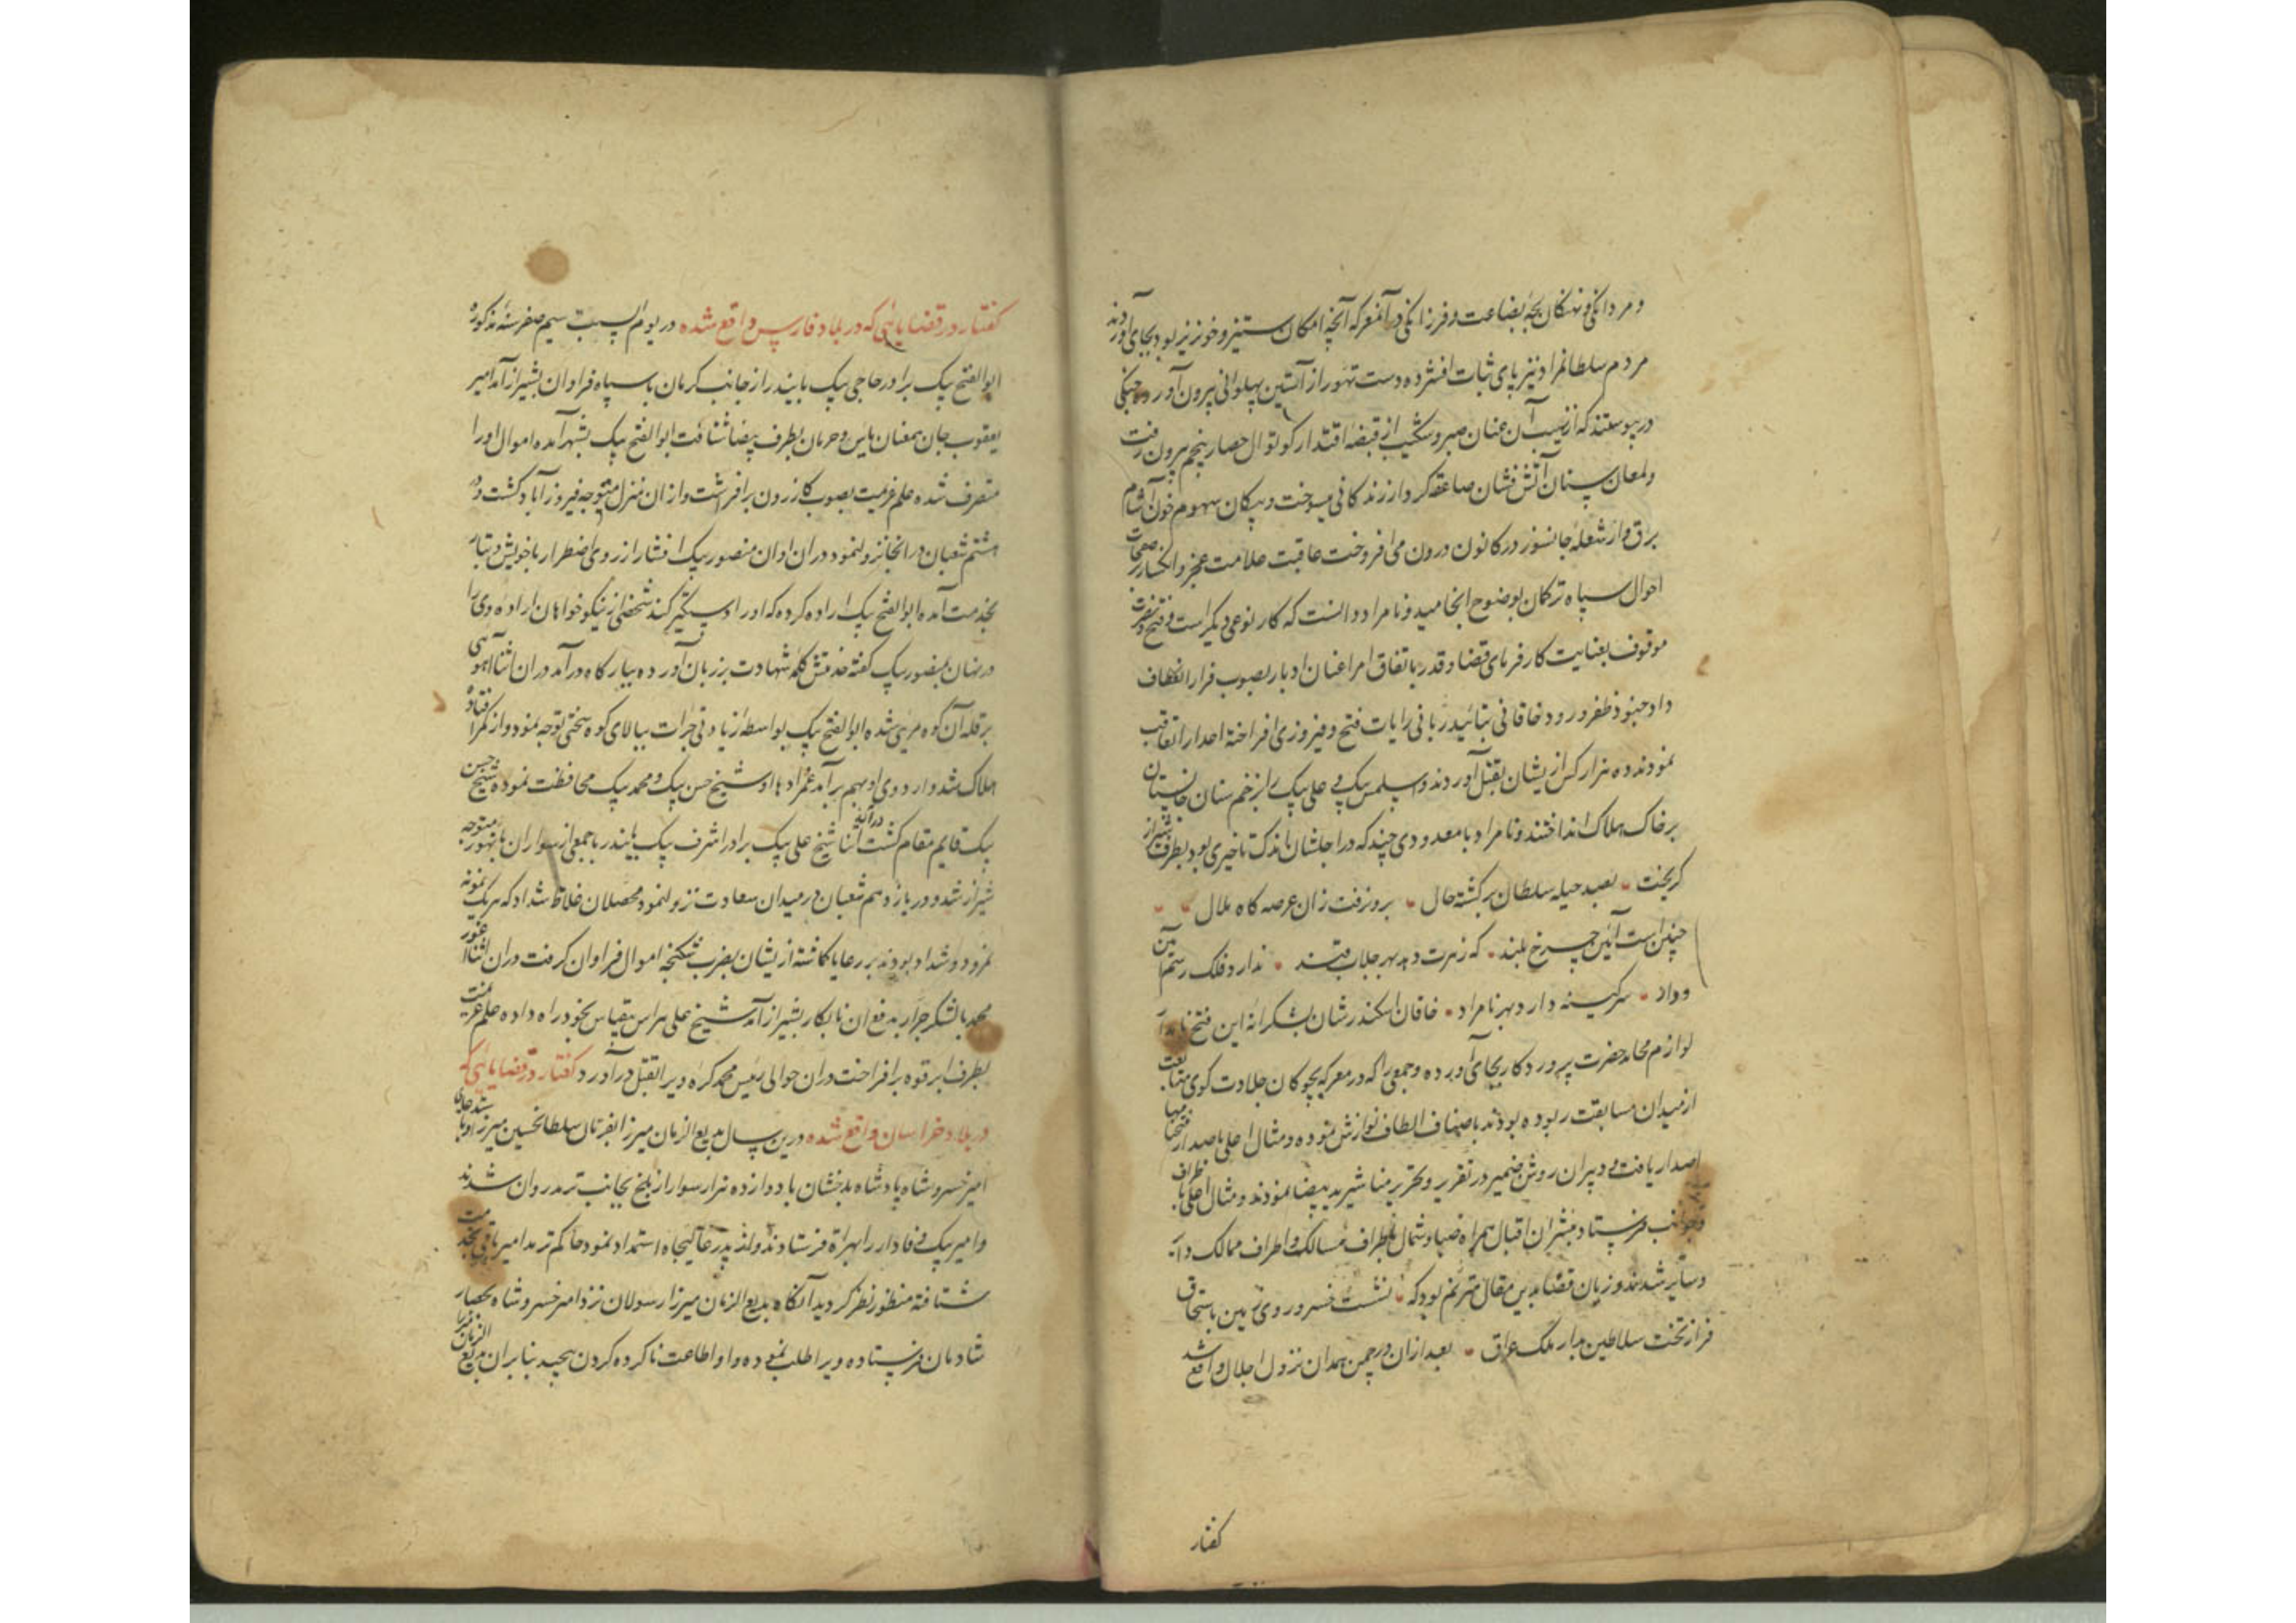 و مردانگی و نهنگان لجهٔ بضاعت و فرزانگی در آن معرکه آنچه امکان ستیز و خونریز بود بجای آوردند
مردم سلطانمراد نیز پای ثبات افشرده دست تهور از آستین پهلوانی بیرون آورده جنگی
درپیوستند که از نهیب آن عنان صبر و شکیب از قبضهٔ اقتدار کوتوال حصار پنجم بیرون رفت
و لمعان سنان آتش فشان صاعقه کردار زندکانی میسوخت و پیکان سهوم خون آشام
برق وار شعلهٔ جانسوز در کانون درون می افروخت عاقبت علامت عجز و انکسار بر صفحات
احوال سپاه ترکمان بوضوح انجامید و نامراد دانست که کار نوعی دیگر است و فتح و نصرت
موقوف بعنایت کارفرمای قضا و قدر باتفاق امرا عنان ادبار بصوب فرار انعطاف
داد و جنود ظفر ورود خاقانی بتائید ربانی رایات فتح و فیروزی افراخته اعدا را تعاقب
نمودند ده هزار کس از یشان بقتل آوردند و اسلمس بیک و علی بیک را بزخم سنان جانستان
بر خاک هلاک انداختند و نامراد با معدودی چند که در اجلشان اندک تاخیری بود بطرف شیراز
گریخت بصد حیله سلطان برگشته حال برون رفت زان عرصه گاه ملال
چنین است آئین چرخ بلند که زهرت دهد بهر جلاب قند ندارد فلک رسم آئین
و داد سر کینه دارد بهر نامراد خاقان اسکندر شان بشکرانه این فتح نامدار
لوازم محامد حضرت پروردکار بجای آورده و جمعی را که در معرکه بچوکان جلادت کوی متابعت
از میدان مسابقت ربوده بودند باصناف الطاف نوازش نموده و مثال اعلی باصدار فتحنامها
اصدار یافت و دبیران روشن ضمیر در تقریر و تحریر مناشیر ید بیضا نمودند و مثال اعلی باطراف
و جوانب فرستاد مبشران اقبال همراه صبا و شمال باطراف مسالک و اطراف ممالک دائر
و سایر شدند و زبان قضا بدین مقال مترنم بود که نشست خسرو روی زمین باستحقاق
فراز تخت سلاطین بدار ملک عراق بعد ازان در چمن همدان نزول اجلال واقع شد
کفتار
کفتار در قضایائی که در بلاد فارس واقع شده در یوم السبت سیم صفر سنه مذکوره
ابو الفتح بیک برادر حاجی بیک بایندر از جانب کرمان با سپاه فراوان بشیراز آمد امیر
یعقوب جان بمعنان یاس و حرمان بطرف بیضا شتافت ابو الفتح بیک بشهر آمده اموال او را
متصرف شده علم عزیمت بصوب کازرون برافراشت و از ان منزل متوجه فیروزآباد کشت و در
هشتم شعبان در انجا نزول نمود در ان اوان منصور بیک افشار از روی اضطرار با خویش و تبار
بخدمت آمده ابو الفتح بیک اراده کرده که او را دستگیر کند شخصی از نیکو خواهان اراده وی را
در نهان بمنصور بیک کفته خدمتش کلمه شهادت بر زبان آورده ببارکاه درآمد در ان اثنا آهوئی
بر قله آن کوه مرئی شده ابو الفتح بیک بواسطهٔ زیادتی جرات ببالای کوه سختی توجه نمود و از کمر افتاده
هلاک شد و اردوی او بهم برآمد عمزادها او شیخ حسن بیک و محمد بیک محافظت نموده شیخ حسن
بیک قایم مقام کشت در آن اثنا شیخ علی بیک برادر اشرف بیک بایندر با جمعی از سواران متوجه
شیراز شد و در یازدهم شعبان در میدان سعادت نزول نمود و محصلان غلاظ شداد که هر یک نمونه
نمرود و شداد بودند بر رعایا کماشته از یشان بضرب شکنجه اموال فراوان کرفت در ان اثنا
محمد با لشکر جرار بدفع ان نابکار بشیراز آمد شیخ علی هراس بیقیاس بخود راه داده علم عزیمت
بطرف ابرقوه برافراخت در ان حوالی رئیس محمد کره ویرا بقتل درآورد کفتار در قضایائی که
در بلاد خراسان واقع شده درین سال بدیع الزمان میرزا بفرمان سلطانحسین میرزا
امیر خسرو شاه پادشاه بدخشان با دوازده هزار سوار از بلخ بجانب ترمد روان شدند
و امیر بیک وفادار را بهراة فرستادند و از پدر عالیجاه استمداد نمود حاکم ترمد امیر باقی بخدمت
شتافته منظور نظر کردید آنکاه بدیع الزمان میرزا رسولان نزد امیر خسرو شاه بحصار
شادمان فرستاده ویرا طلب نموده و او اطاعت ناکرده کردن پیچید بنابران بدیع الزمان میرزا